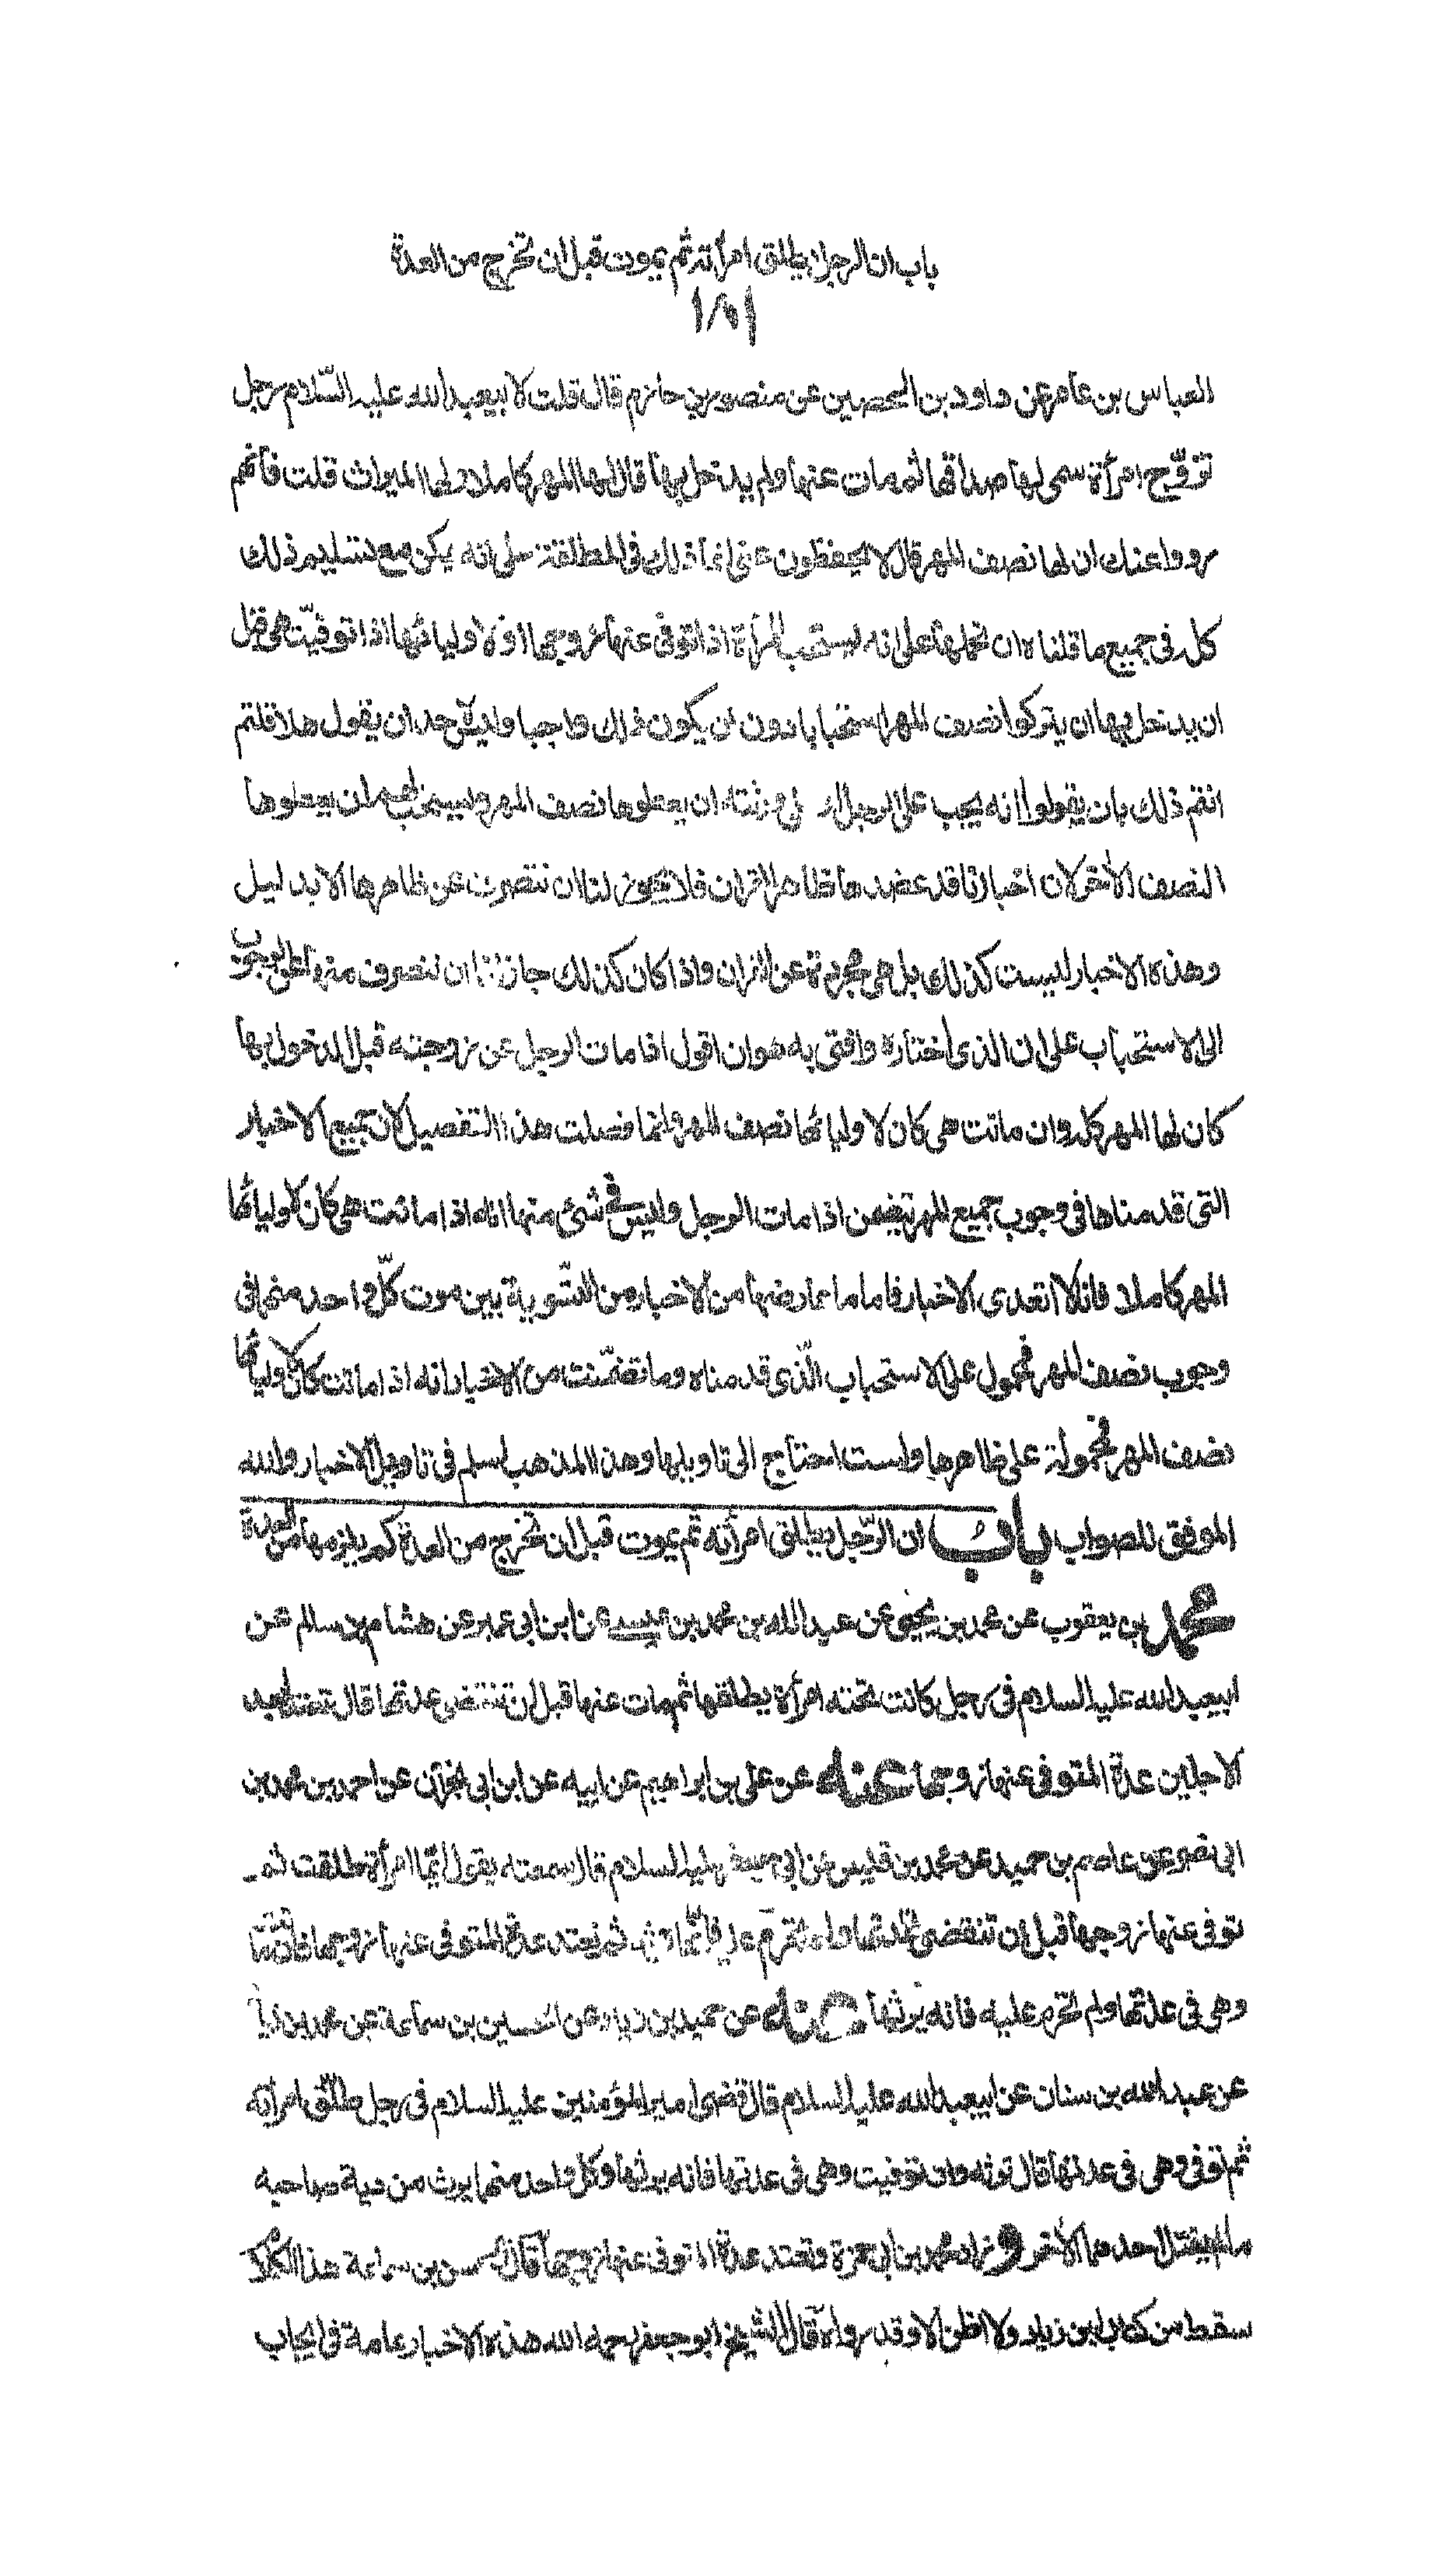 باب ان الرجل يطلق امرأته ثم يموت قبل ان تخرج من العدة
العباس بن عامر عن داود بن الحصين عن منصور بن حازم قال قلت لابيعبد الله عليه السّلام رجل
تزوّج امرأة سمى لها صداقها ثم مات عنها ولم يدخل بها قال لها المهر كاملا ولها الميراث قلت فانهم
رووا عنك ان لها نصف المهر قال لا يحفظون عنى انما ذلك فى المطلقة على انه يمكن مع تسليم ذلك
كله فى جميع ما قلناه ان نحملها على انه يستحب للمرأة اذا توفى عنها زوجها او لاوليائها اذا توفيّت هى قبل
ان يدخل بها ان يتركوا نصف المهر استحبابا دون ان يكون ذلك واجبا وليس لاحد ان يقول هلا قلتم
انتم ذلك بان يقولوا انه يجب على الرجل او ورثته ان يعطوها نصف المهر ويستحب لهم ان يعطوها
النصف الأخر لان اخبارنا قد عضدها ظاهر القران فلا يجوز لنا ان ننصرف عن ظاهرها الا بدليل
وهذه الاخبار ليست كذلك بل هى مجردة عن القران واذا كان كذلك جاز لنا ان ننصرف منها من الوجوب
الى الاستحباب على ان الذى أختاره وافتى به هو ان اقول اذا مات الرجل عن زوجته قبل الدخول بها
كان لها المهر كله وان ماتت هى كان لاوليائها نصف المهر وانما فصلت هذا التفصيل لان جميع الاخبار
التى قدمناها فى وجوب جميع المهر تتضمن اذا مات الرجل وليس فى شئ منها انه اذا ماتت هى كان لاوليائها
المهر كاملا فانا لا اتعدى الاخبار فاما ما عارضها من الاخبار من التّسوية بين موت كلّ واحد منهما فى
وجوب نصف المهر فمحمول على الاستحباب الّذى قدمناه وما تضمّنت من الاخبار انه اذا ماتت كان لاوليائها
نصف المهر فمحمولة على ظاهرها ولست احتاج الى تاويلها وهذا المذهب اسلم فى تاويل الاخبار والله
الموفق للصواب باب ان الرّجل يطلق امرأته ثم يموت قبل ان تخرج من العدة كم يلزمها من العدة
محمد بن يعقوب عن محمد بن يحيى عن عبد الله بن محمد بن عيسى عن ابن ابى عمير عن هشام بن سالم عن
ابيعبد الله عليه السلام فى رجل كانت تحته امرأة يطلقها ثم مات عنها قبل ان تنقضى عدتها قال تعتد ابعد
الاجلين عدة المتوفى عنها زوجها عنه عن على بن ابراهيم عن ابيه عن ابن ابى نجران عن احمد بن محمد بن
ابى نصر عن عاصم بن حميد عن محمد بن قيس عن ابى جعفر عليه السلام قال سمعته يقول ايّما امرأة طلقت ثم
توفى عنها زوجها قبل ان تنقضى عدتها ولم تحرم عليه فانّها ترثه ثم تعتد عدة المتوفى عنها زوجها فان توفيت
وهى فى عدتها ولم تحرم عليه فانه يرثها عنه عن حميد بن زياد عن الحسين بن سماعة عن محمد بن زياد
عن عبد الله بن سنان عن ابيعبد الله عليه السلام قال قضى امير المؤمنين عليه السلام فى رجل طلّق امرأته
ثم توفى وهى فى عدتها قال ترثه وان توفيت وهى فى عدتها فانه يرثها وكل واحد منهما يرث من دية صاحبه
ما لم يقتل احدهما الأخر وزاد محمد بن ابى حمزة وتعتد عدة المتوفى عنها زوجها قال الحسن بن سماعة هذا الكلام
سقط من كتاب ابن زياد ولا اظن الا وقد رواه قال الشيخ ابو جعفر رحمه الله هذه الاخبار عامة فى ايجاب